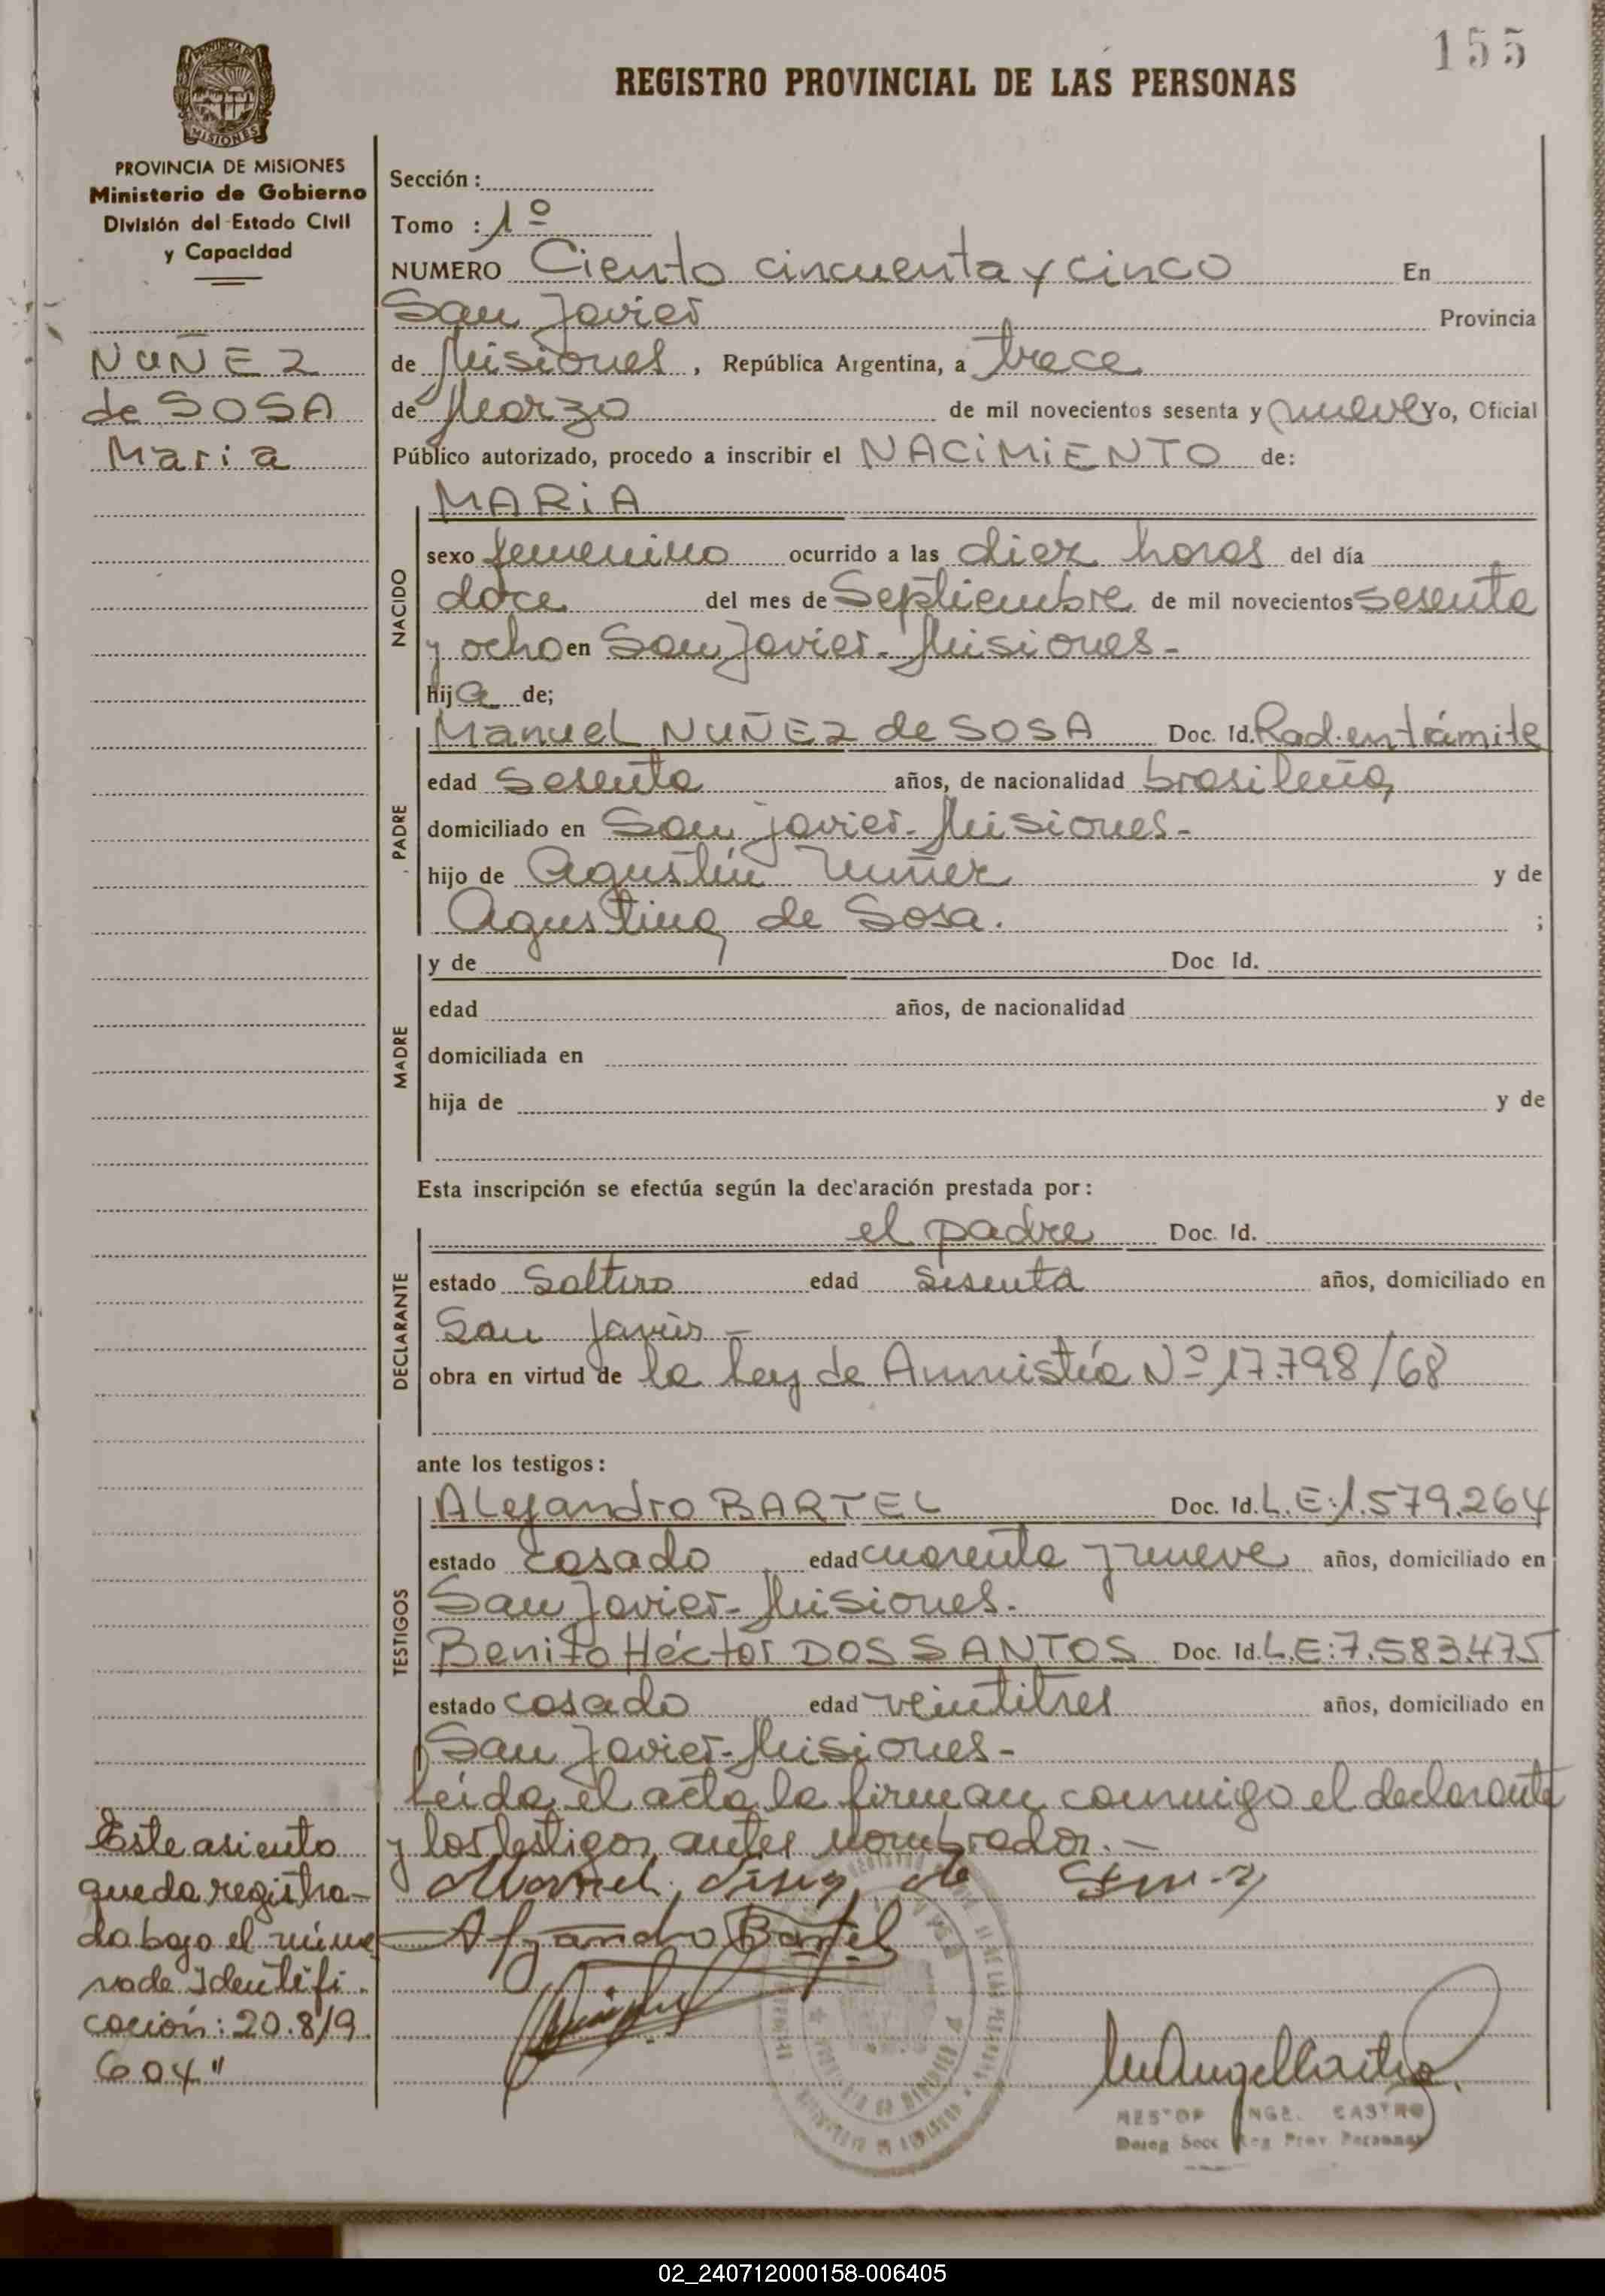 155
REGISTRO PROVINCIAL DE LAS PERSONAS
MISIONES
PROVINCIA DE MISIONES
Ministerio de Gobierno
División del Estado Civil
y Capacidad
NUÑEZ
de SOSA
Maria
Sección :
Tomo : 1º
NUMERO Ciento cincuenta y cinco En
San Javier Provincia
de Misiones, República Argentina, a trece
de Marzo de mil novecientos sesenta y nueve Yo, Oficial
Público autorizado, procedo a inscribir el NACiMiENTO de:
MARiA
NACIDO
sexo femenino ocurrido a las diez horas del día
doce del mes de Septiembre de mil novecientos sesenta
y ocho en San Javier - Misiones -
hija de;
PADRE
Manuel NUÑEZ de SOSA Doc. Id. Rad. en trámite
edad sesenta años, de nacionalidad brasileña
domiciliado en San Javier - Misiones -
hijo de Agustín Nuñez y de
Agustina de Sosa. ;
MADRE
y de Doc Id.
edad años, de nacionalidad
domiciliada en
hija de y de
Esta inscripción se efectúa según la declaración prestada por:
DECLARANTE
el padre Doc. Id.
estado Soltero edad sesenta años, domiciliado en
San Javier -
obra en virtud de la ley de Amnistía Nº 17.798/68
ante los testigos:
TESTIGOS
Alejandro BARTEL Doc. Id. L.E: 1.579.264
estado casado edad cuarenta y nueve años, domiciliado en
San Javier - Misiones.
Benito Héctor DOS SANTOS Doc. Id. L.E: 7.583.475
estado casado edad veintitres años, domiciliado en
San Javier - Misiones -
Leída el acta la firman conmigo el declarante
y los testigos antes nombrados. -
Este asiento
queda registra-
do bajo el núme
ro de Identifi
cación: 20.819
604"
Alejandro Bartel
CASTRO
Reg Prov Personas
02_240712000158-006405